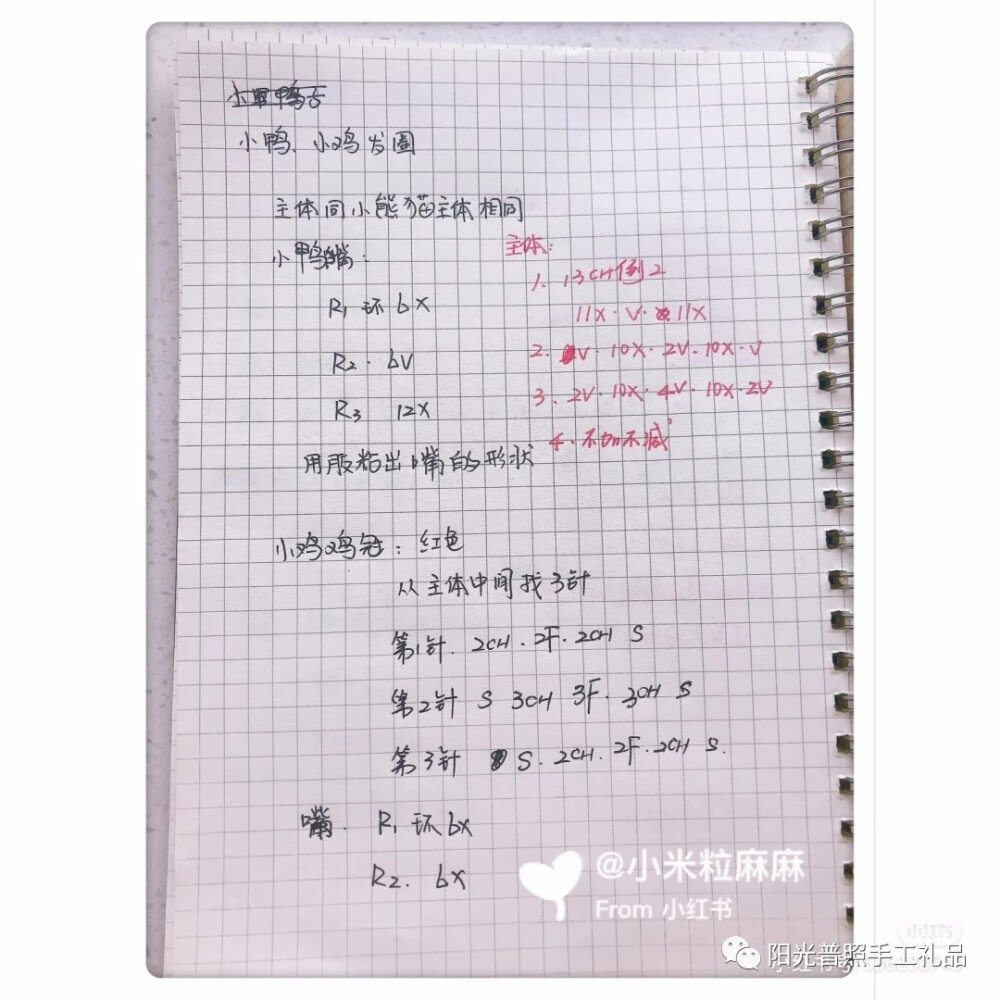 小鸭、小鸡发圈
主体同小熊猫主体相同
小鸭嘴:
R1 环 6X
R2 · 6V
R3 12X
用胶粘出嘴的形状
主体:
1. 13CH倒2
11X · V · 11X
2. V · 10X · 2V · 10X · V
3、2V · 10X · 4V · 10X · 2V
4 · 不加不减
小鸡鸡冠: 红色
从主体中间找3针
第1针. 2CH · 2F · 2CH S
第2针 S 3CH 3F · 3CH S
第3针 S · 2CH · 2F · 2CH S.
嘴. R1 环 6X
R2. 6X
@小米粒麻麻
From 小红书
小红书
阳光普照手工礼品